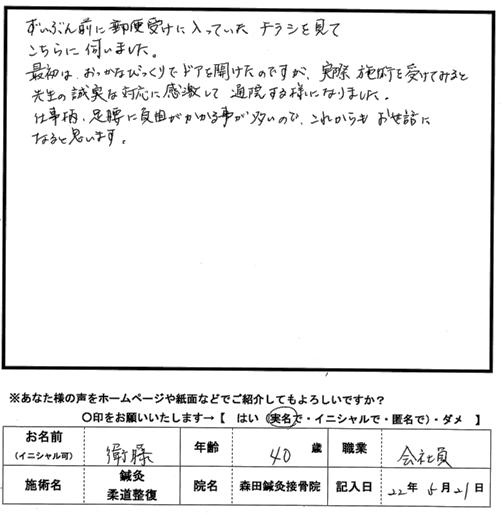 ずいぶん前に郵便受けに入っていた チラシを見て
こちらに伺いました。
最初は、おっかなびっくりでドアを開けたのですが、実際 施術を受けてみると
先生の誠実な対応に感激して 通院する様になりました。
仕事柄、足腰に負担がかかる事が多いので、これからも お世話に
なると思います。
※あなた様の声をホームページや紙面などでご紹介してもよろしいですか？
〇印をお願いいたします→【 はい（実名で・イニシャルで・匿名で）・ダメ 】
お名前（イニシャル可） 衛藤 年齢 40 歳 職業 会社員
施術名 鍼灸 柔道整復 院名 森田鍼灸接骨院 記入日 22年 5月21日